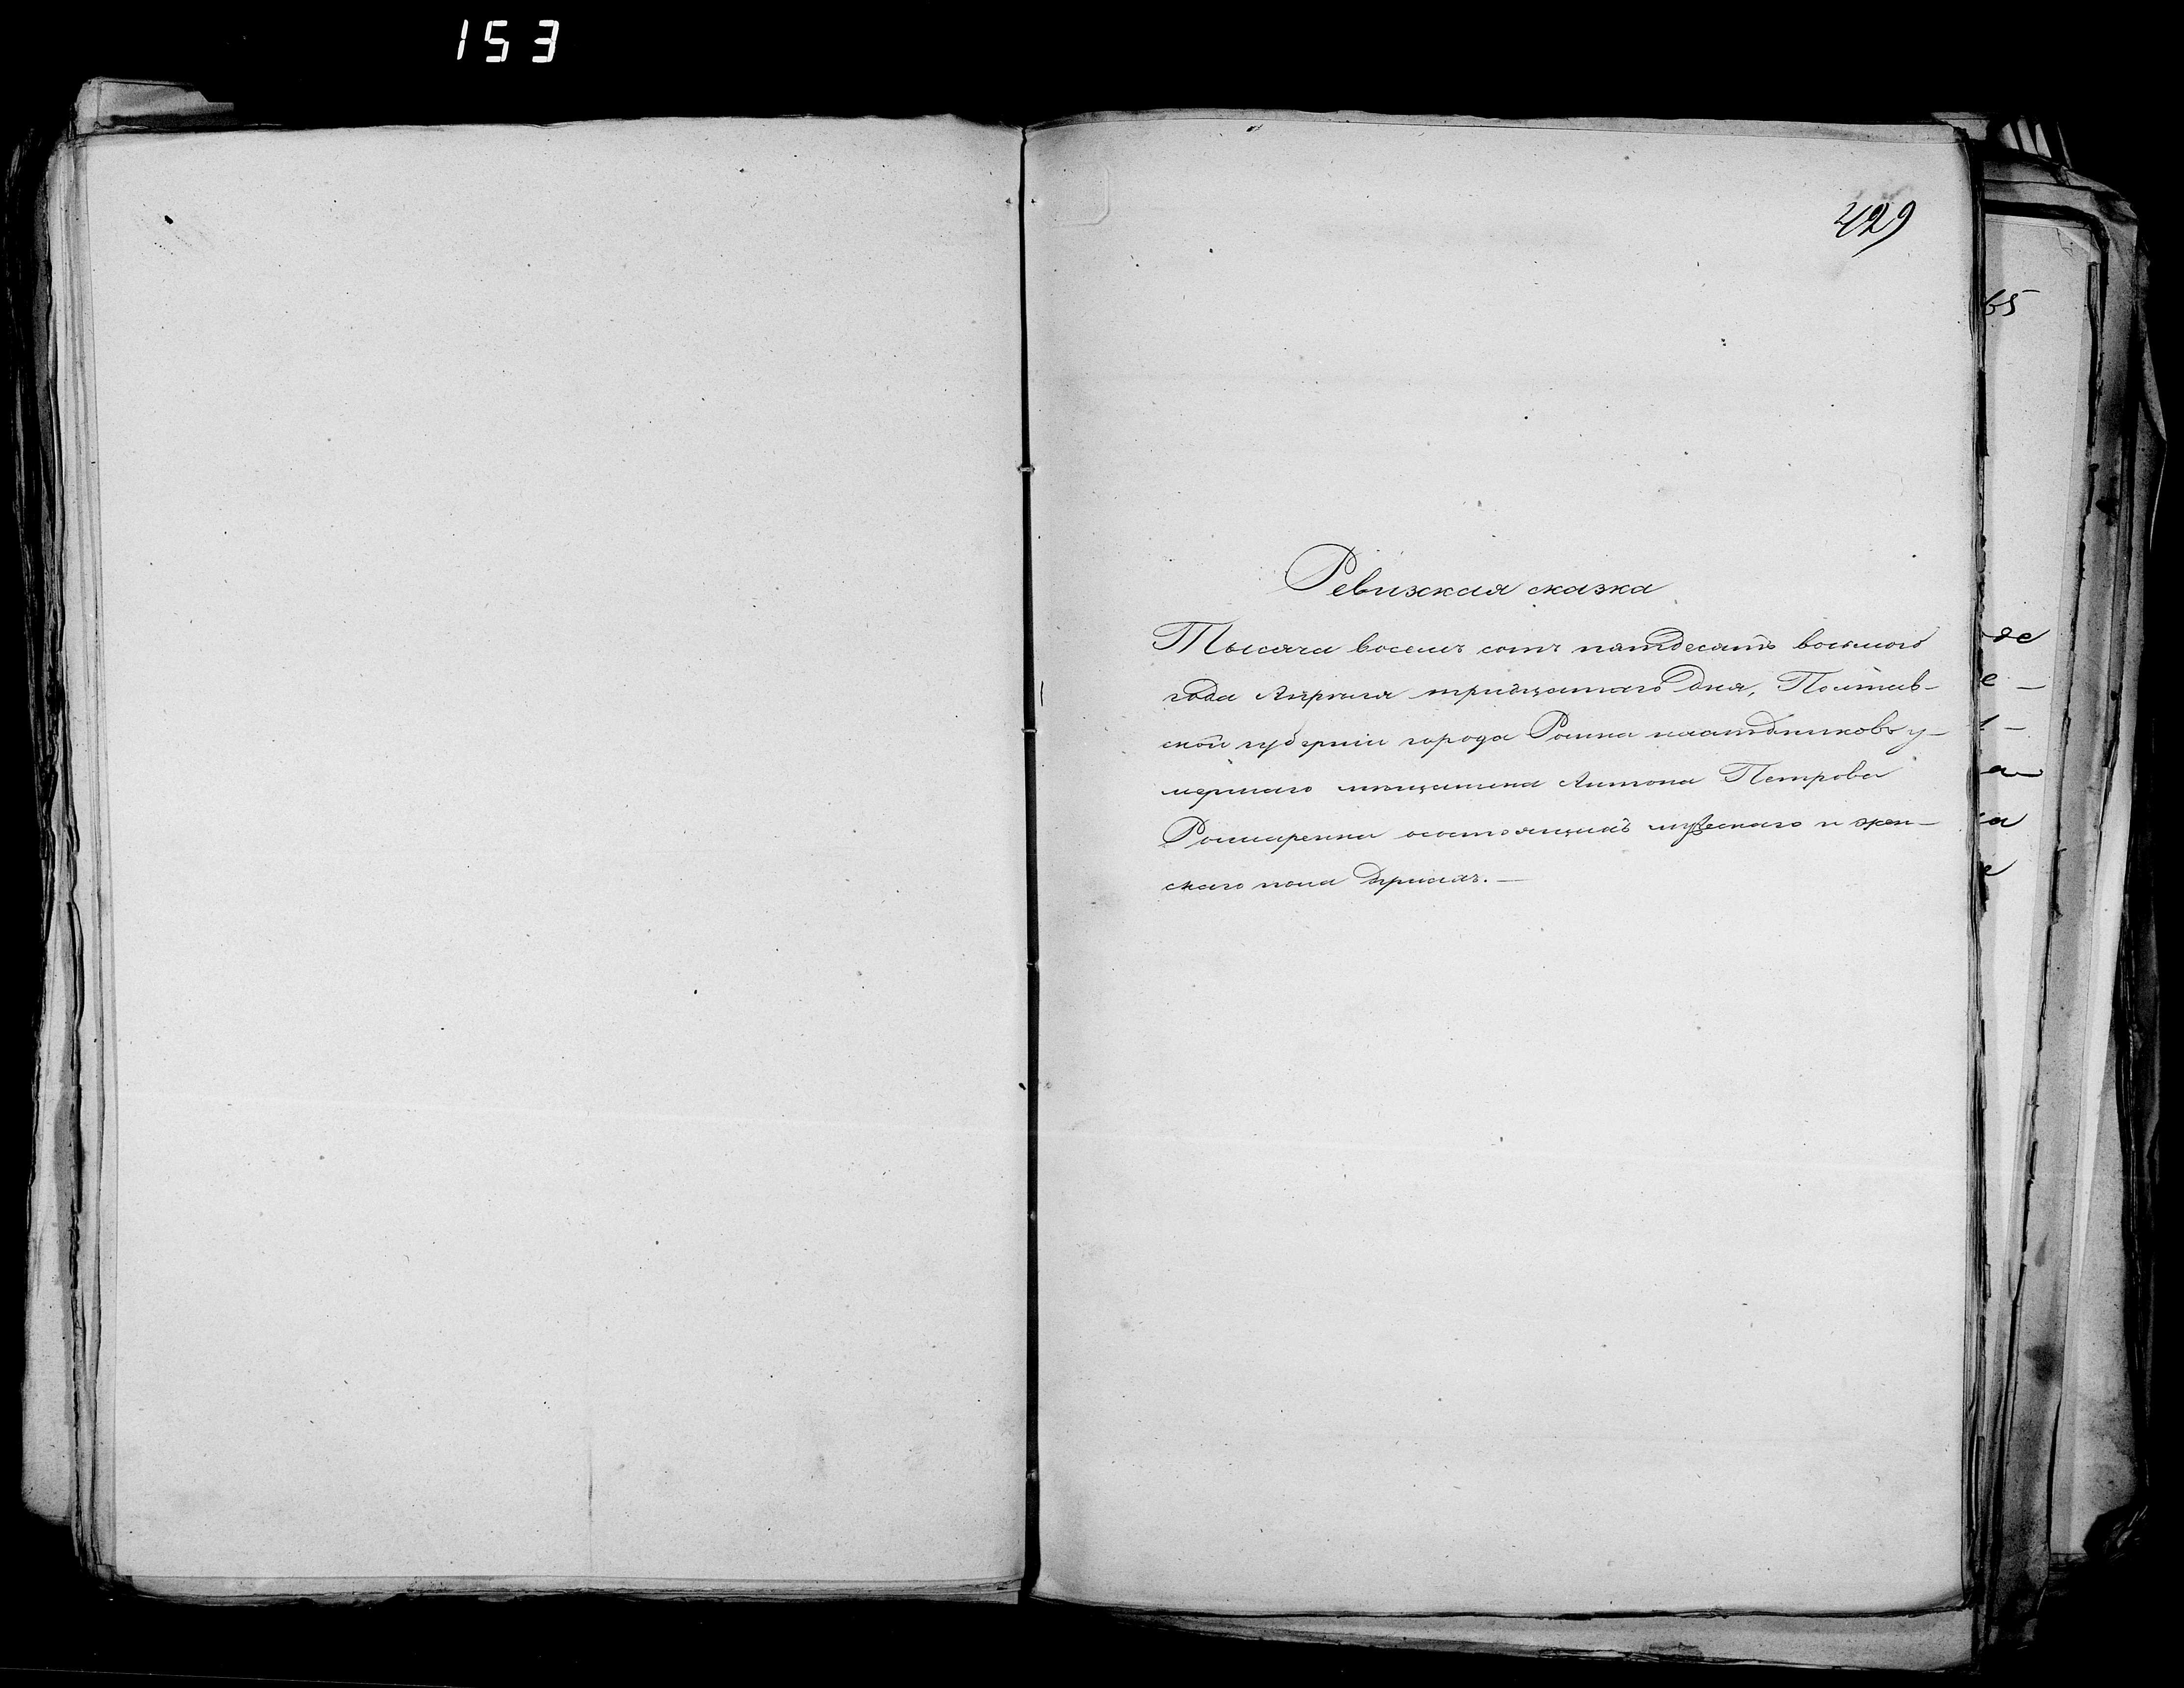 153
429
Ревизкая сказка
Тысяча восемъ сотъ пятдесятъ восьмого
года Апреля тридцатого дня, Полтав-
ской губерніи города Ромна наследниковъ у-
мершаго мещанина Антона Петрова
Ромаренка осостоящихъ мужескаго и жен-
скаго пола душахъ. —
65
де
е —
а
е